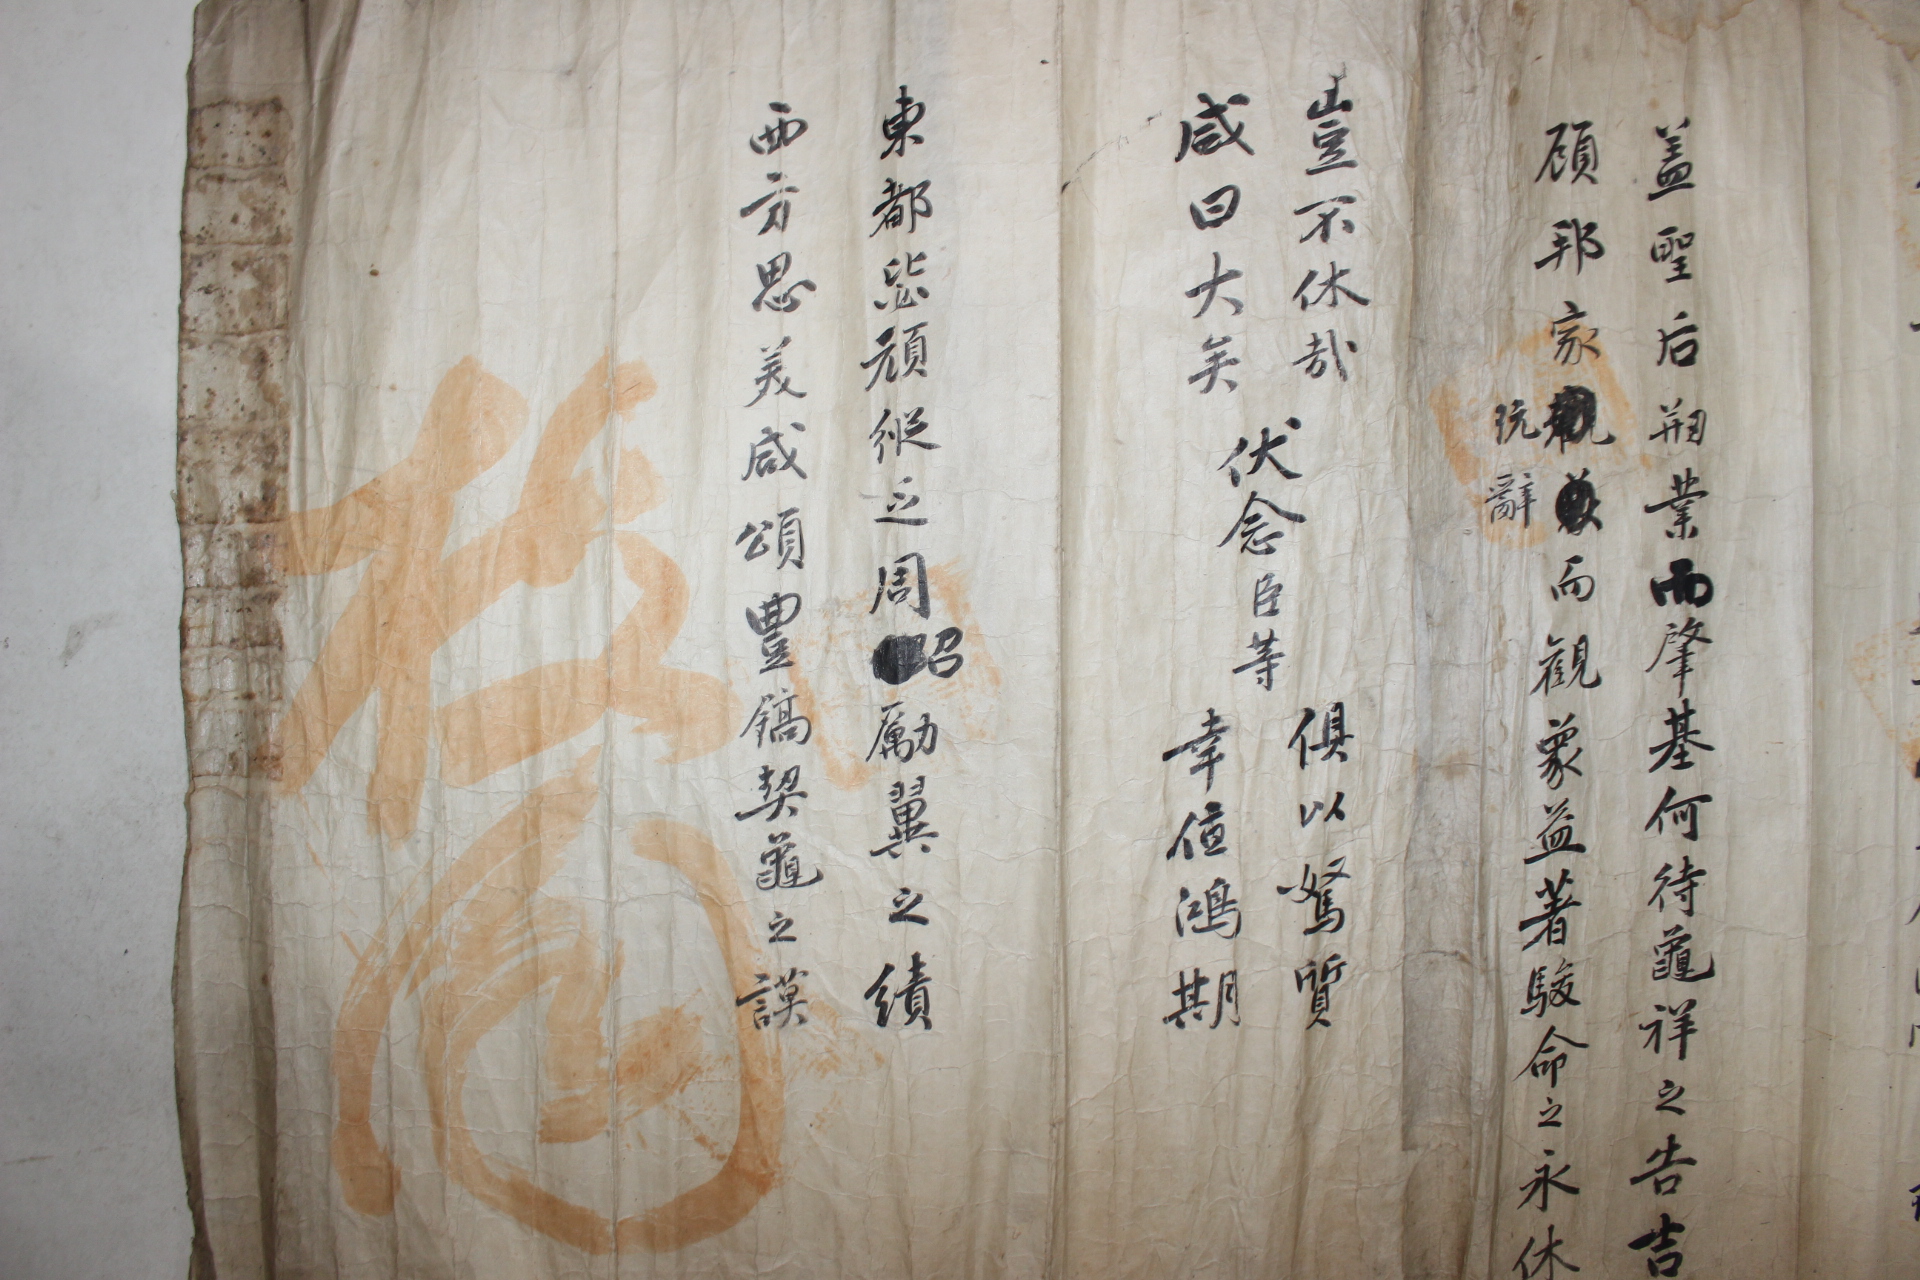 盖聖后刱業而肇基何待龜祥之告吉
顧邦家玩辭而觀象益著駿命之永休
豈不休哉
咸曰大矣
伏念臣等
俱以駑質
幸值鴻期
東都毖頑縱乏周昭勵翼之績
西方思美咸頌豊鎬契龜之謨